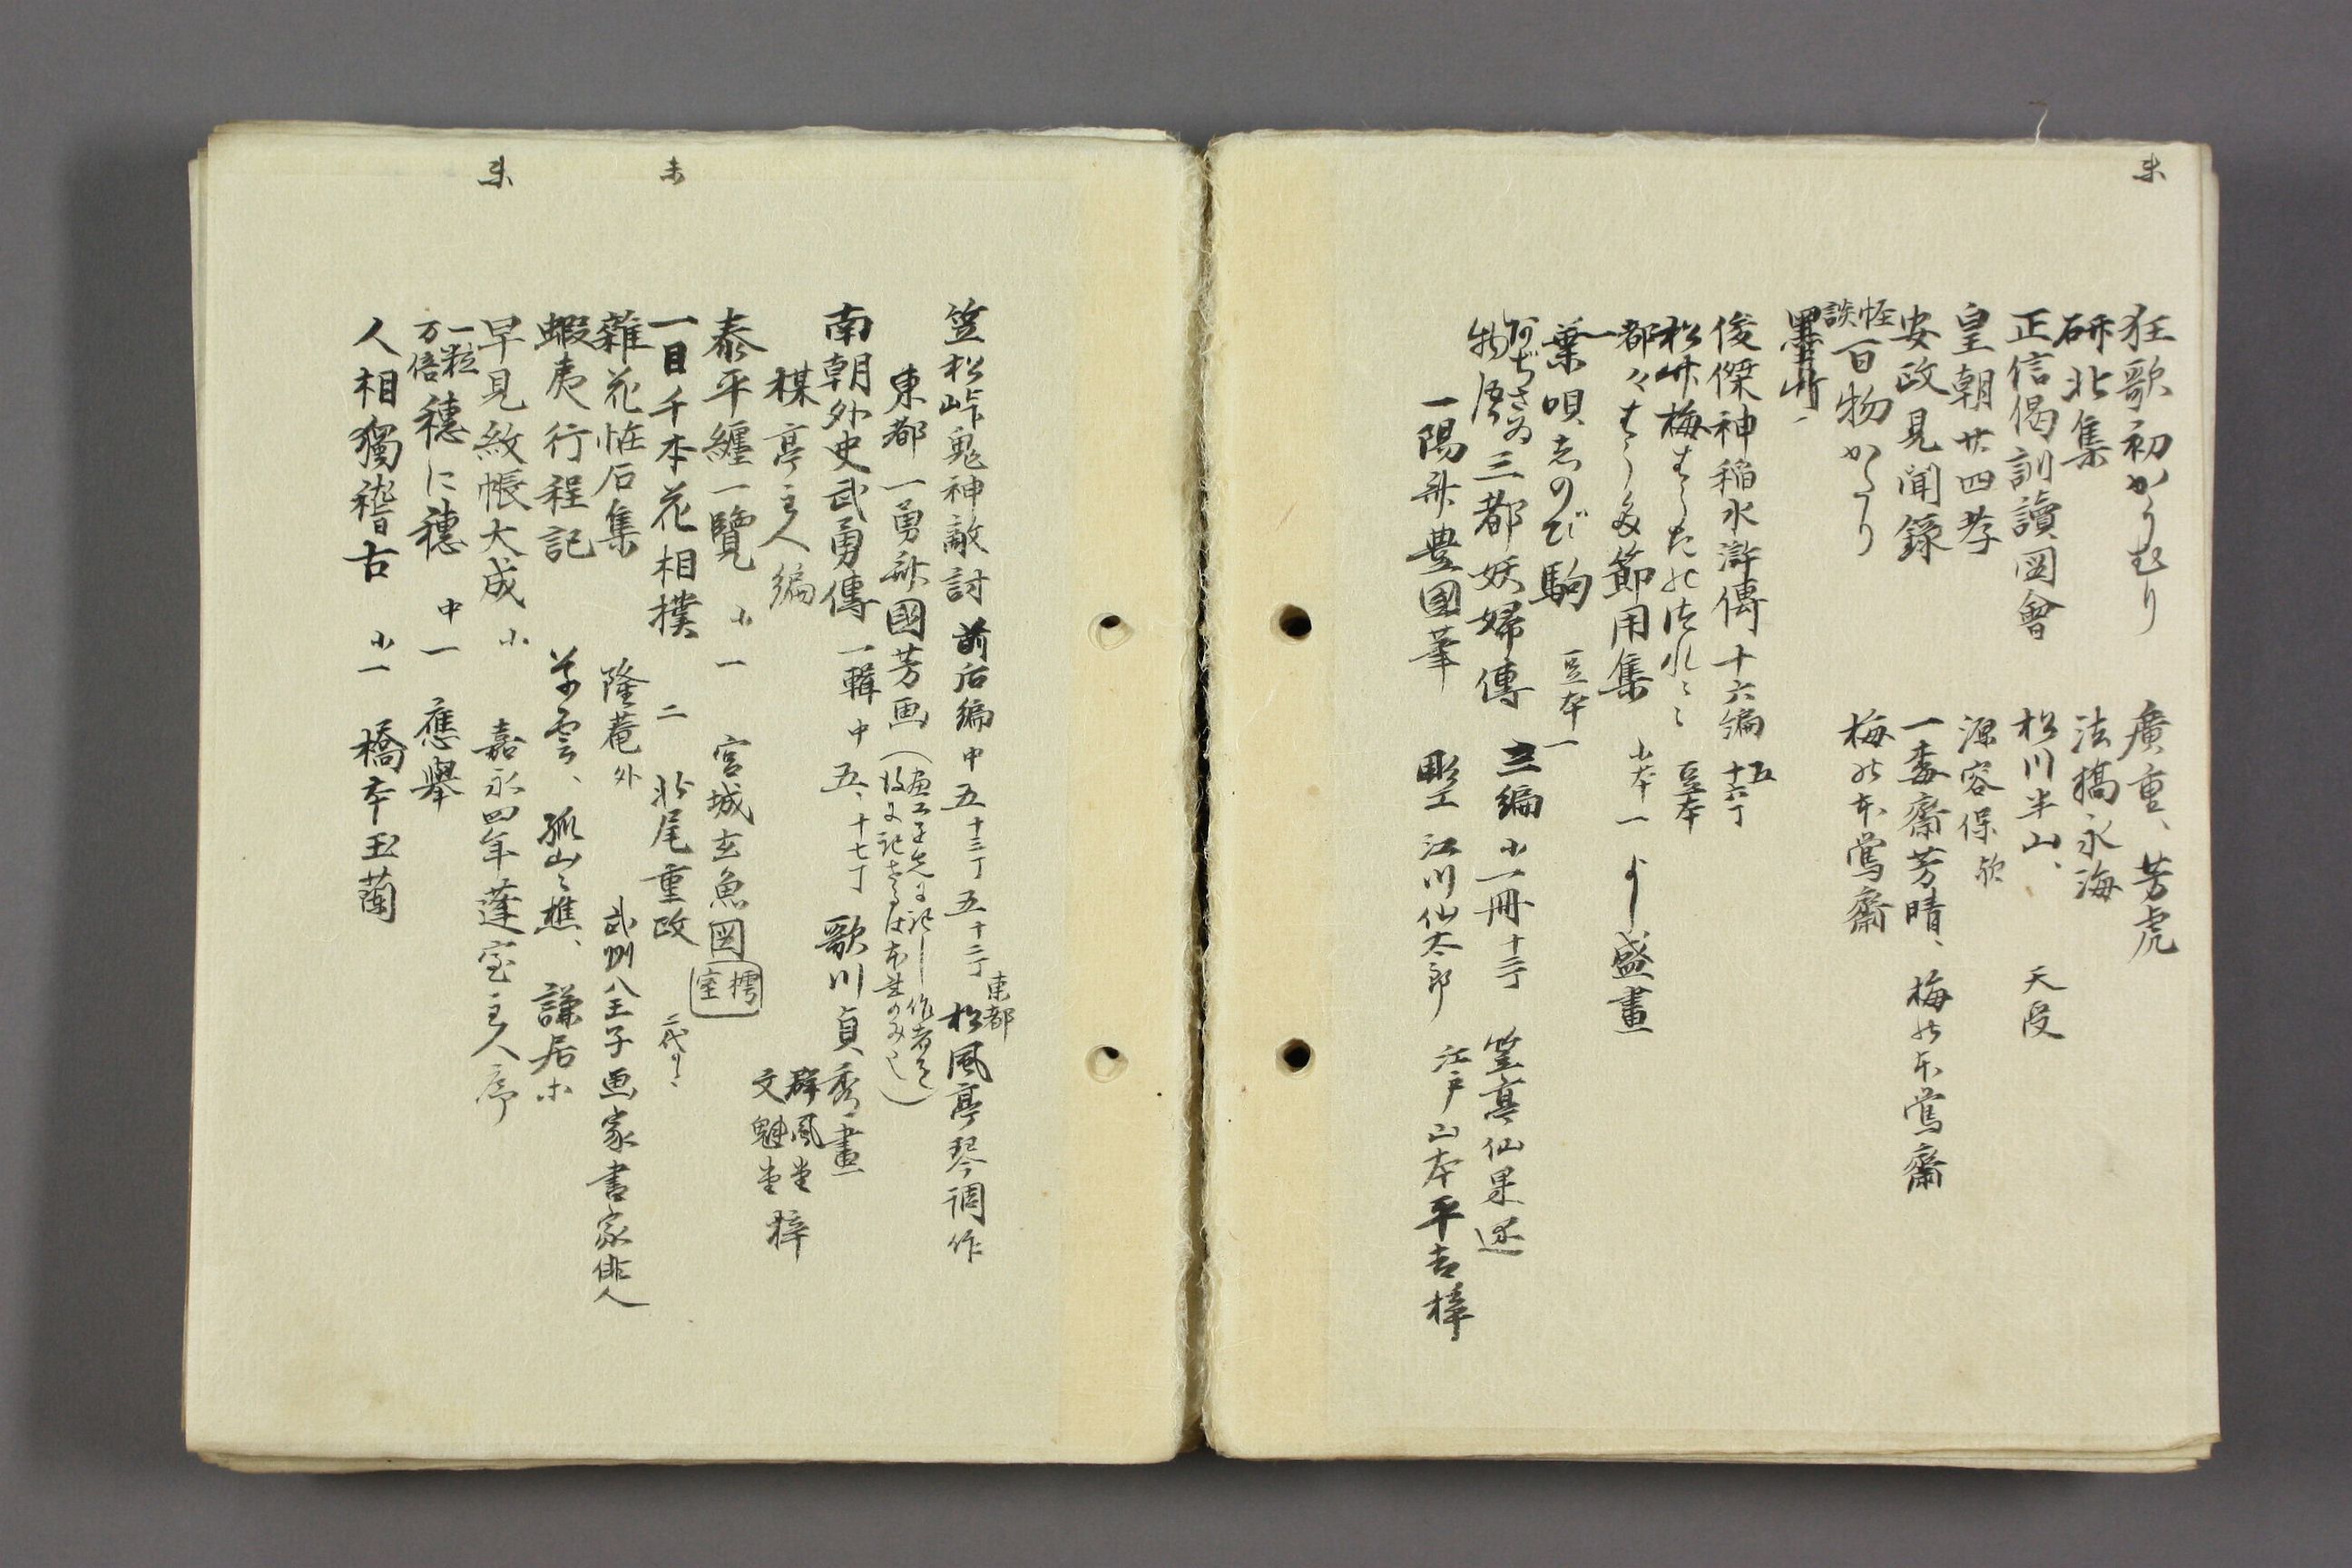 未
狂歌初かうむり　廣重、芳虎
研北集　法橋永海
正信偈訓讀図會　松川半山、　天受
皇朝廿四孝　源容保
安政見聞録　一委齋芳晴、梅の本鶯齋
怪談百物かたり　梅の本鶯齋
俊傑神稲水滸傳十六編　五十六丁
豆本
都々節用集　小本一　よし盛畫
葉唄しのび駒　豆本一
物語三都妖婦傳　三編　小一冊十二丁　笠亭仙果述
一陽齋豊國筆　彫工　江川仙太郎　江戸山本平吉梓
笠松峠鬼神敵討　前后編　中　五十三丁　五十二丁　東都松風亭琴调作
東都　一勇齋國芳画
南朝外史武勇傳　一輯　中　五、十七丁　歌川貞秀畫
楳亭主人編　群鳳堂　文魁堂　梓
泰平纏一覽　小一　宮城玄魚図
未
一目千本花相撲　二　北尾重政
雜花怪石集　隆菴外　武州八王子画家書家俳人
蝦夷行程記　孤山々樵、謙居
未
早見紋帳大成　小　嘉永四年蓬室主人序
一粒万倍穂に穂　中一　應擧
人相獨稽古　小一　橋本玉蘭